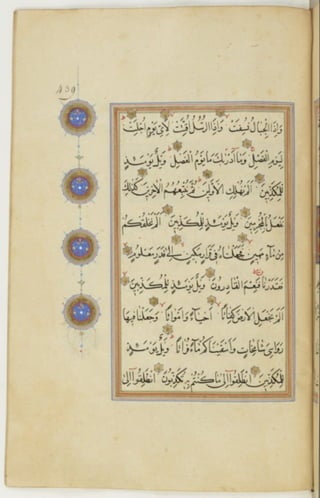 وَاِذَا الْجِبَالُ نُسِفَتْ وَاِذَا الرُّسُلُ اُقِّتَتْ لِاَيِّ يَوْمٍ اُجِّلَتْ
لِيَوْمِ الْفَصْلِ وَمَا اَدْرٰيكَ مَا يَوْمُ الْفَصْلِ وَيْلٌ يَوْمَئِذٍ
لِلْمُكَذِّبِينَ اَلَمْ نُهْلِكِ الْاَوَّلِينَ ثُمَّ نُتْبِعُهُمُ الْاٰخِرِينَ كَذٰلِكَ
نَفْعَلُ بِالْمُجْرِمِينَ وَيْلٌ يَوْمَئِذٍ لِلْمُكَذِّبِينَ اَلَمْ نَخْلُقْكُمْ
مِنْ مَاءٍ مَهِينٍ فَجَعَلْنَاهُ فِي قَرَارٍ مَكِينٍ اِلٰى قَدَرٍ مَعْلُومٍ
فَقَدَرْنَا فَنِعْمَ الْقَادِرُونَ وَيْلٌ يَوْمَئِذٍ لِلْمُكَذِّبِينَ
اَلَمْ نَجْعَلِ الْاَرْضَ كِفَاتًا اَحْيَاءً وَاَمْوَاتًا وَجَعَلْنَا فِيهَا
رَوَاسِيَ شَامِخَاتٍ وَاَسْقَيْنَاكُمْ مَاءً فُرَاتًا وَيْلٌ يَوْمَئِذٍ
لِلْمُكَذِّبِينَ اِنْطَلِقُوا اِلٰى مَا كُنْتُمْ بِهِ تُكَذِّبُونَ اِنْطَلِقُوا اِلٰى